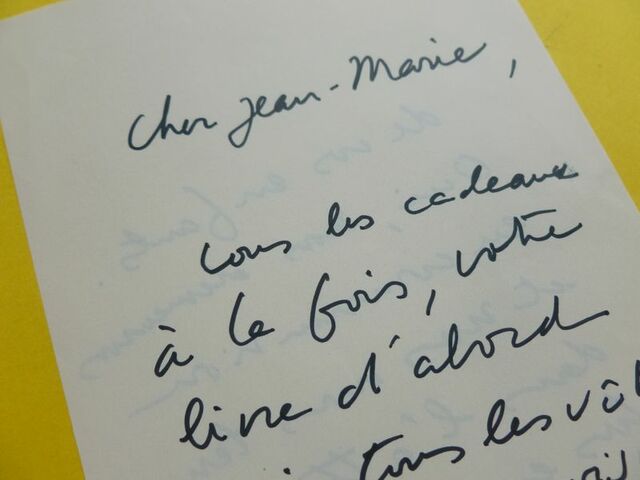 Cher Jean-Marie,
tous les cadeaux
à la fois, votre
livre d'abord
tous les